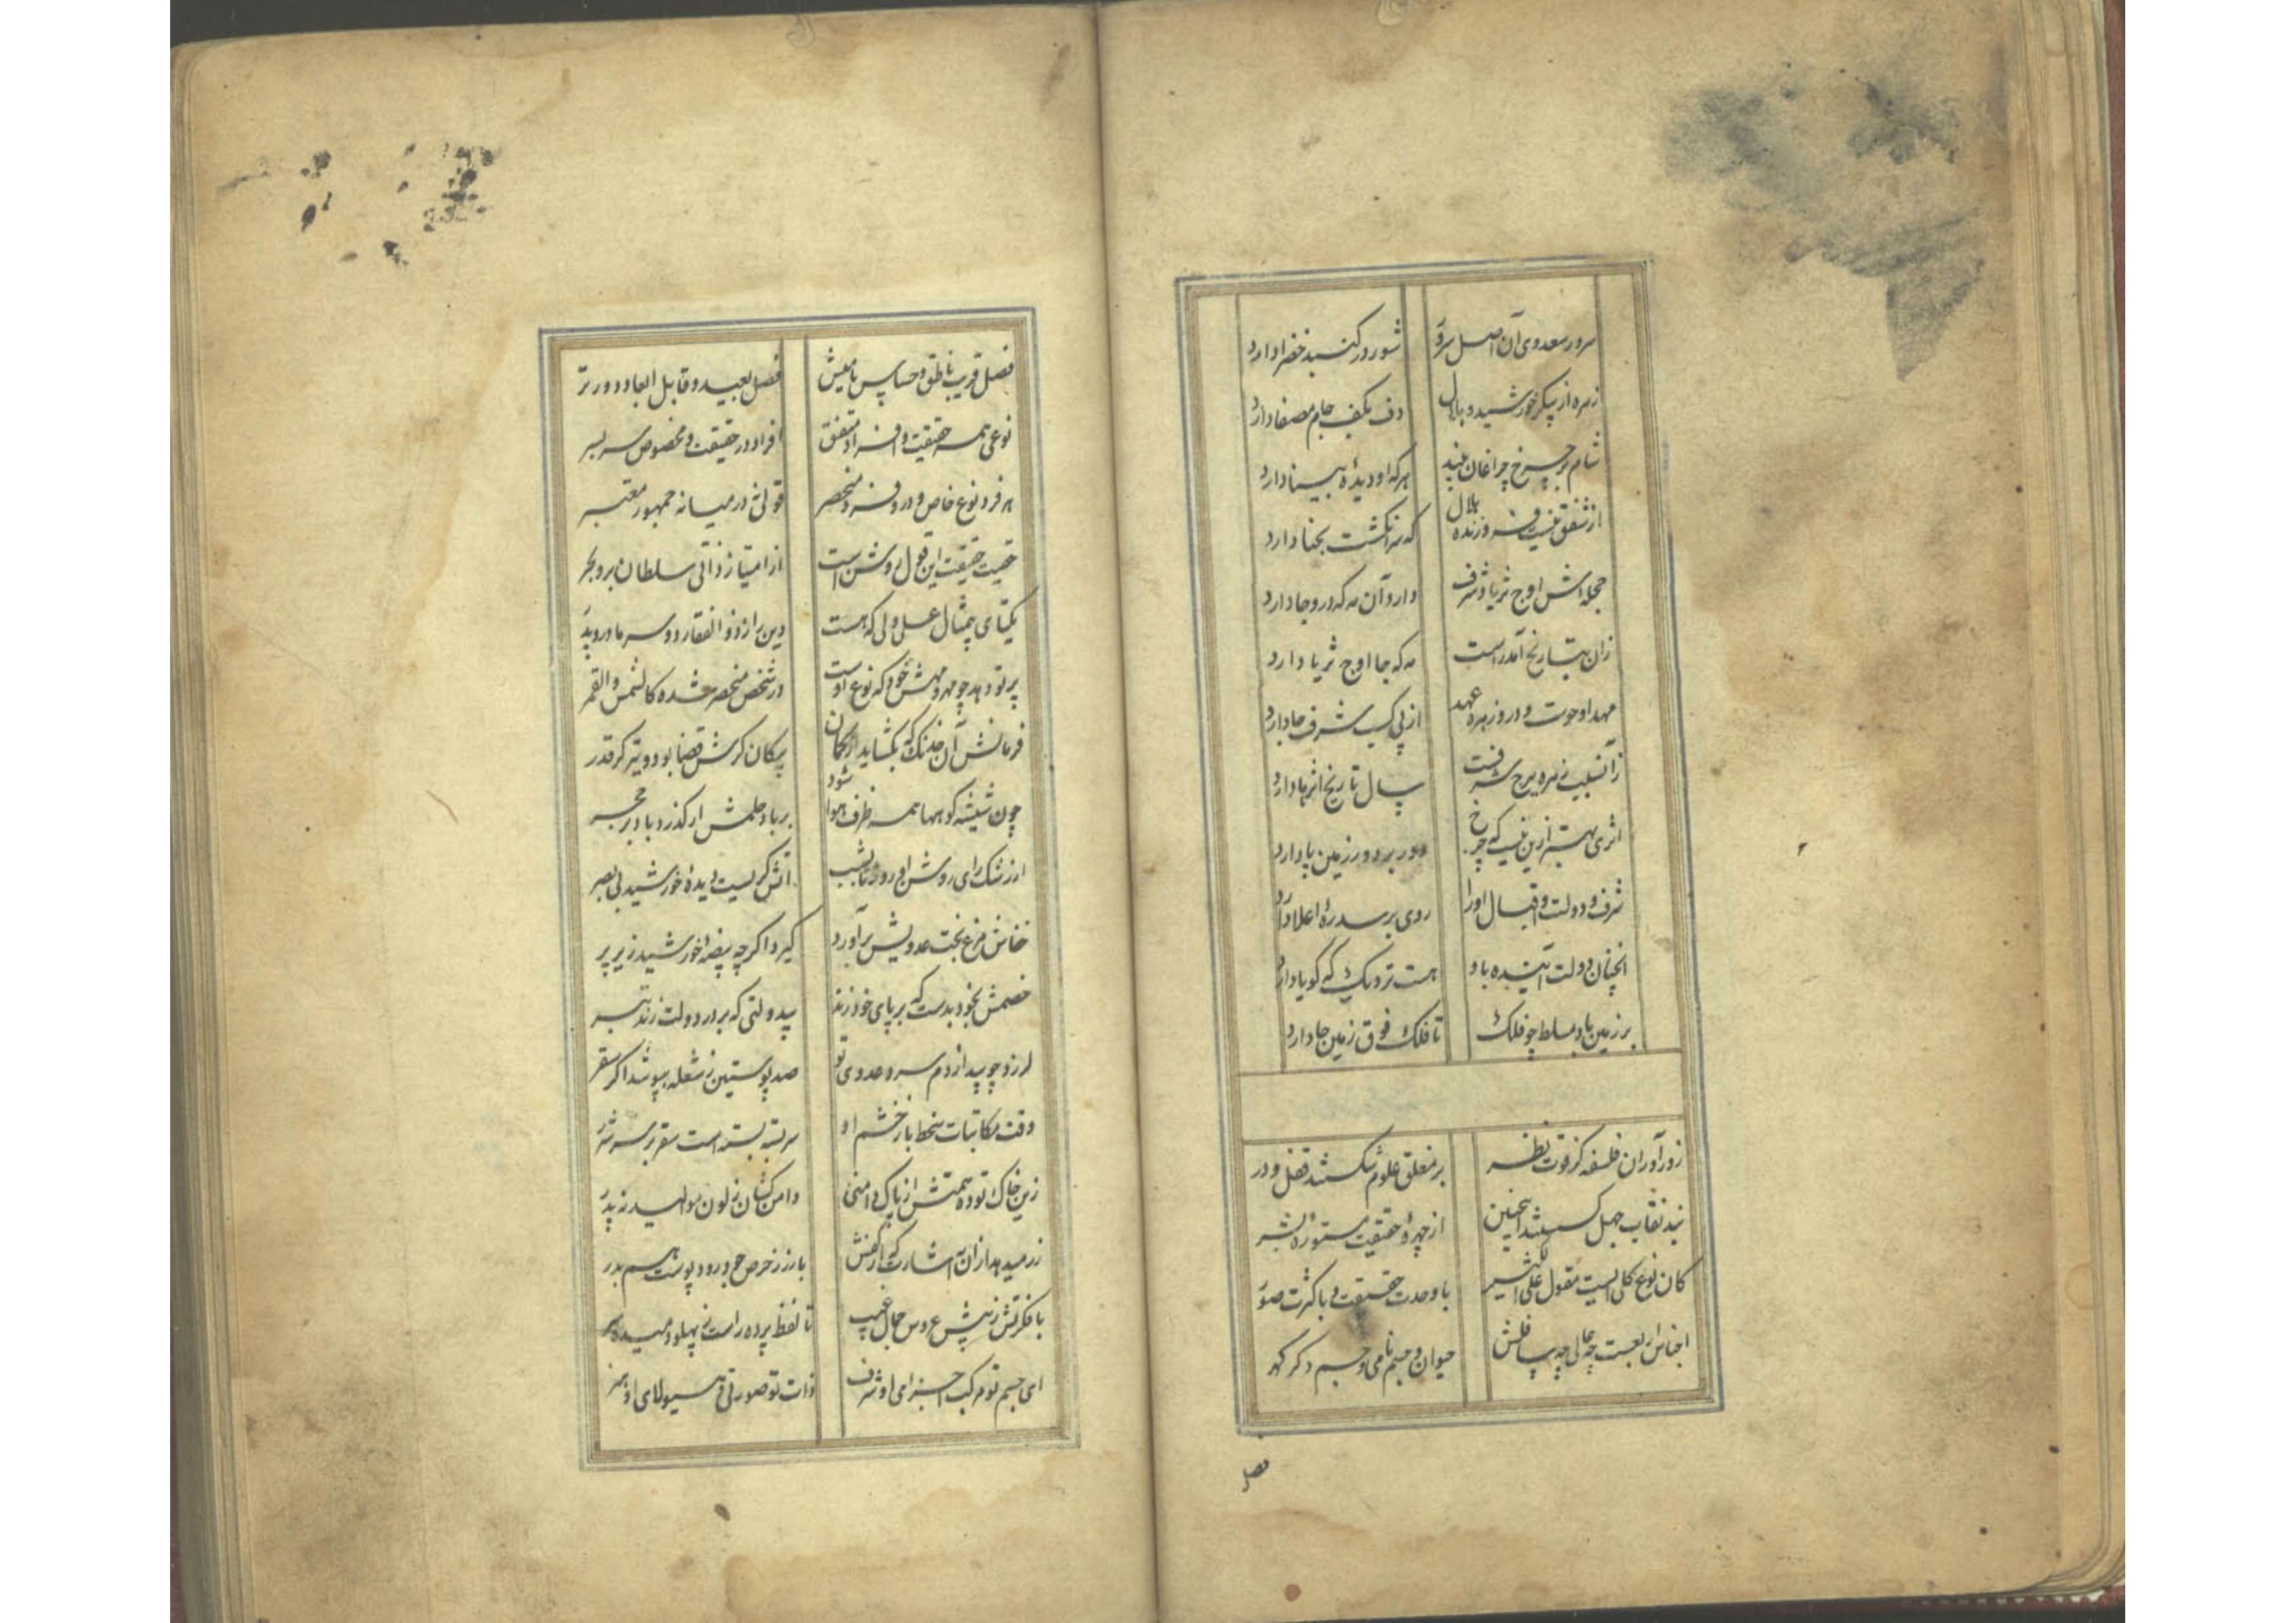 سرور سعدوی آن اصل سرو شور در گنبد خضرا دارد
زهره از پیکر خورشید و هلال دف بکف جام مصفا دارد
شام بر چرخ چراغان بیند هر که او دیدهٔ بینا دارد
از شفق نیست فروزنده هلال که سر انگشت بحنا دارد
حجله‌اش اوج ثریا و شرف دارد آن مه که درو جا دارد
زان بتاریخ آمد راست مه که جا اوج ثریا دارد
مهد او حوت و درو زهره عهد از پی کسب شرف جا دارد
زآنسبب زهره ببرج شرفت سال تاریخ اثرها دارد
اثری بهتر ازین نیست که چرخ دور بر دور زمین پا دارد
شرف و دولت و اقبال او را روی بر سدرهٔ اعلا دارد
آنچنان دولت آینده باو هست نزدیک که گویا دارد
بر زمین باد مسلط چو فلک تا فلک فوق زمین جا دارد
زورآوران فلسفه کز قوت نظر بر مغلق علوم شکستند قفل و در
بند نقاب جهل گسستند اینچنین از چهرهٔ حقیقت مستورهٔ بشر
کان نوع کلی است مقول علی الکثیر با وحدت حقیقت و با کثرت صور
اجناس اربعست چه عالی چه سافلش حیوان و جسم نامی و جسم و دگر گهر
فصل
فصل قریب ناطق و حساس نامیش فصل بعید و قابل ابعاد دورتر
نوعی همه حقیقت و افراد متفق افراد در حقیقت و مخصوص سربسر
هر فرد نوع خاص و در و فرد منحصر قولی در میانه جمهور معتبر
حقیت حقیقت این قول روشن است از امتیاز ذاتی سلطان بر و بحر
یکتای بی‌مثال علی ولی که هست دین را ز ذوالفقار دو سر مادر و پدر
پرتو دهد چو مهر و مهش خود که نوع اوست در شخص منحصر شده کالشمس والقمر
فرمانش آن خدنگ که بگشاید از کمان پیکان گرش قضا بود و تیر گر قدر
چون شیشه کوهها همه ظرف هوا شود بر باد حلمش ار گذرد باد بر حجر
از رشک رای روشن او روز تا بشب آتش گریست دیدهٔ خورشید بی بصر
خفاش مرغ بخت عدویش برآورد گیرد اگر چه بیضهٔ خورشید زیر پر
خصمش بخود بدست که بر پای خود زند بیدولتی که بر در دولت زند تبر
لرزد چو بید از دم سرد عدوی تو صد پوستین ز شعله بپوشد اگر سقر
وقت مکاتبات سخط با ز خشم او سربسته بسته است سقر بر سر شرر
زین خاک توده همتش از پاک دامنی دامن کشان ز لون موالید نه پدر
زر میدهد از آن اشارت که از کفش بارز ز خرص جو درود پوست هم بدر
با فکرتش ز پیش عروس جمال غیب تا لفظ پرده راست ز پهلو دمیده بر
ای جسم تو مرکب اجزای او شرف ذات تو صورتی و هیولای او هنر